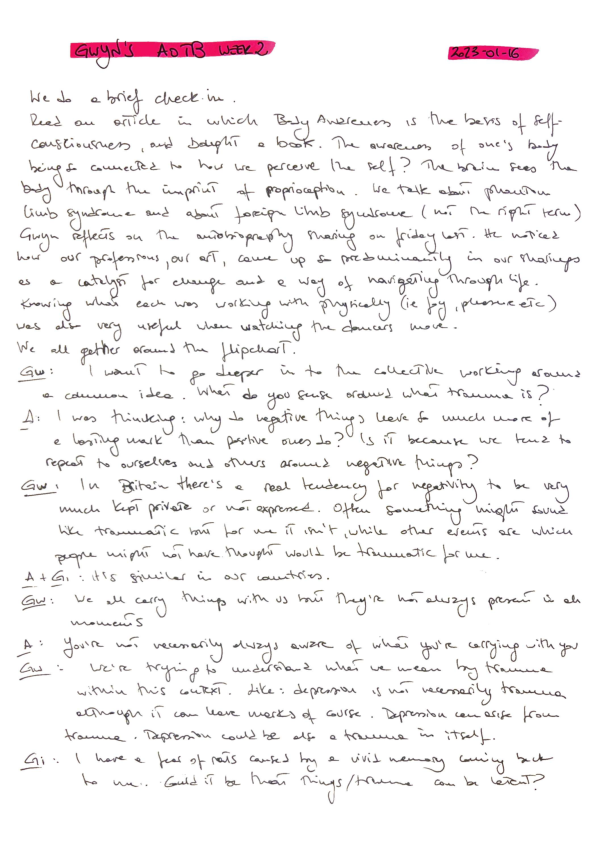 GWYN'S ADTB WEEK 2 2023-01-16
We do a brief check-in.
Read an article in which Body Awareness is the basis of self-
consciousness, and bought a book. The awareness of one's body
being so connected to how we perceive the self? The brain sees the
body through the imprint of proprioception. We talk about phantom
limb syndrome and about foreign limb syndrome (not the right term)
Gwyn reflects on the autobiography sharing on friday last. He noticed
how our professions, our art, came up so predominantly in our sharings
as a catalyst for change and a way of navigating through life.
Knowing what each was working with physically (ie joy, pleasure etc)
was also very useful when watching the dancers move.
We all gather around the flipchart.
Gw: I want to go deeper in to the collective working around
a common idea. What do you sense around what trauma is?
A: I was thinking: why do negative things leave so much more of
a lasting mark than positive ones do? Is it because we tend to
repeat to ourselves and others around negative things?
Gw: In Britain there's a real tendency for negativity to be very
much kept private or not expressed. Often something might sound
like traumatic but for me it isn't, while other events are which
people might not have thought would be traumatic for me.
A + Gi: it's similar in our countries.
Gw: We all carry things with us but they're not always present in all
moments
A: You're not necessarily always aware of what you're carrying with you
Gw: We're trying to understand what we mean by trauma
within this context. Like: depression is not necessarily trauma
although it can leave marks of course. Depression can arise from
trauma. Depression could be also a trauma in itself.
Gi: I have a fear of rats caused by a vivid memory coming back
to me.. Could it be that things/trauma can be latent?